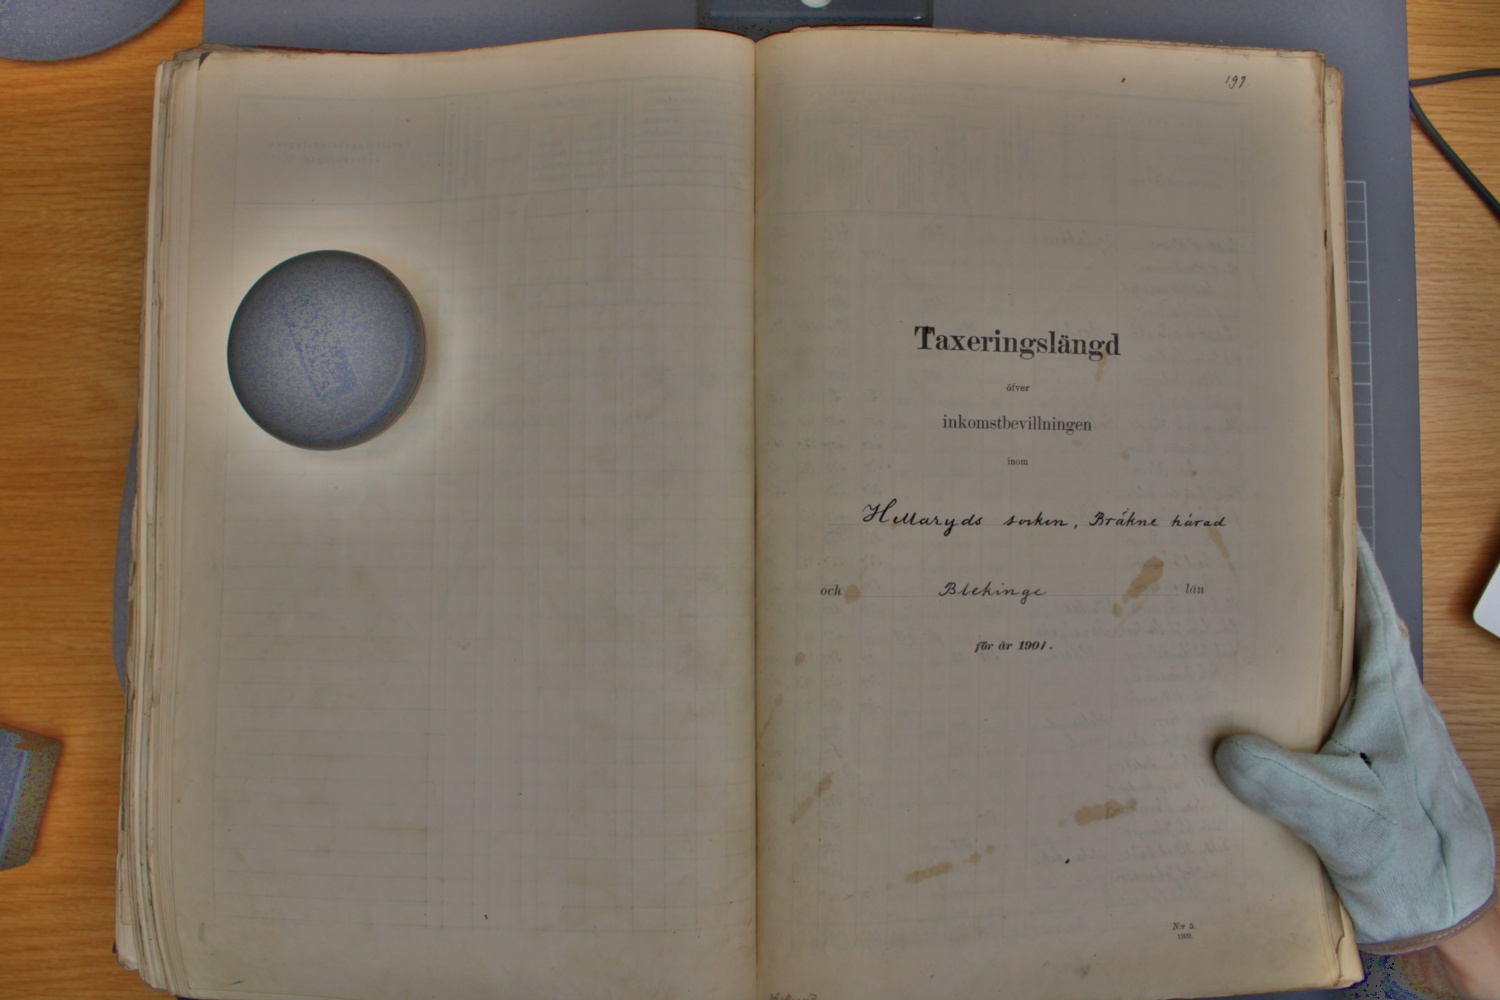 197
Taxeringslängd
öfver
inkomstbevillningen
inom
Hellaryds socken, Bräkne härad
och Blekinge län
för år 1901.
N:r 5.